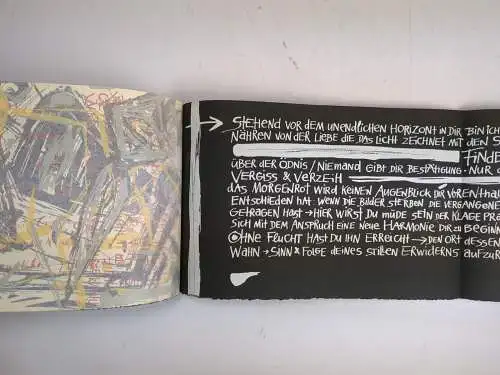 → STEHEND VOR DEM UNENDLICHEN HORIZONT IN DIR BIN ICH
NÄHREN VON DER LIEBE DIE DAS LICHT ZEICHNET MIT DEN S
FINDE
ÜBER DER ÖDNIS / NIEMAND GIBT DIR BESTÄTIGUNG. NUR D
VERGISS & VERZEIH
DAS MORGENROT WIRD KEINEN AUGENBLICK DIR VORENTHAL
ENTSCHIEDEN HAT. WENN DIE BILDER STERBEN DIE VERGANGENE
GETRAGEN HAST → HIER WIRST DU MÜDE SEIN DER KLAGE PRE
SICH MIT DEM ANSPRUCH EINE NEUE HARMONIE DIR ZU BEGINN
OHNE FLUCHT HAST DU IHN ERREICHT → DEN ORT DESSEN
WAHN → SINN & FOLGE DEINES STILLEN ERWIDERNS AUFZUR